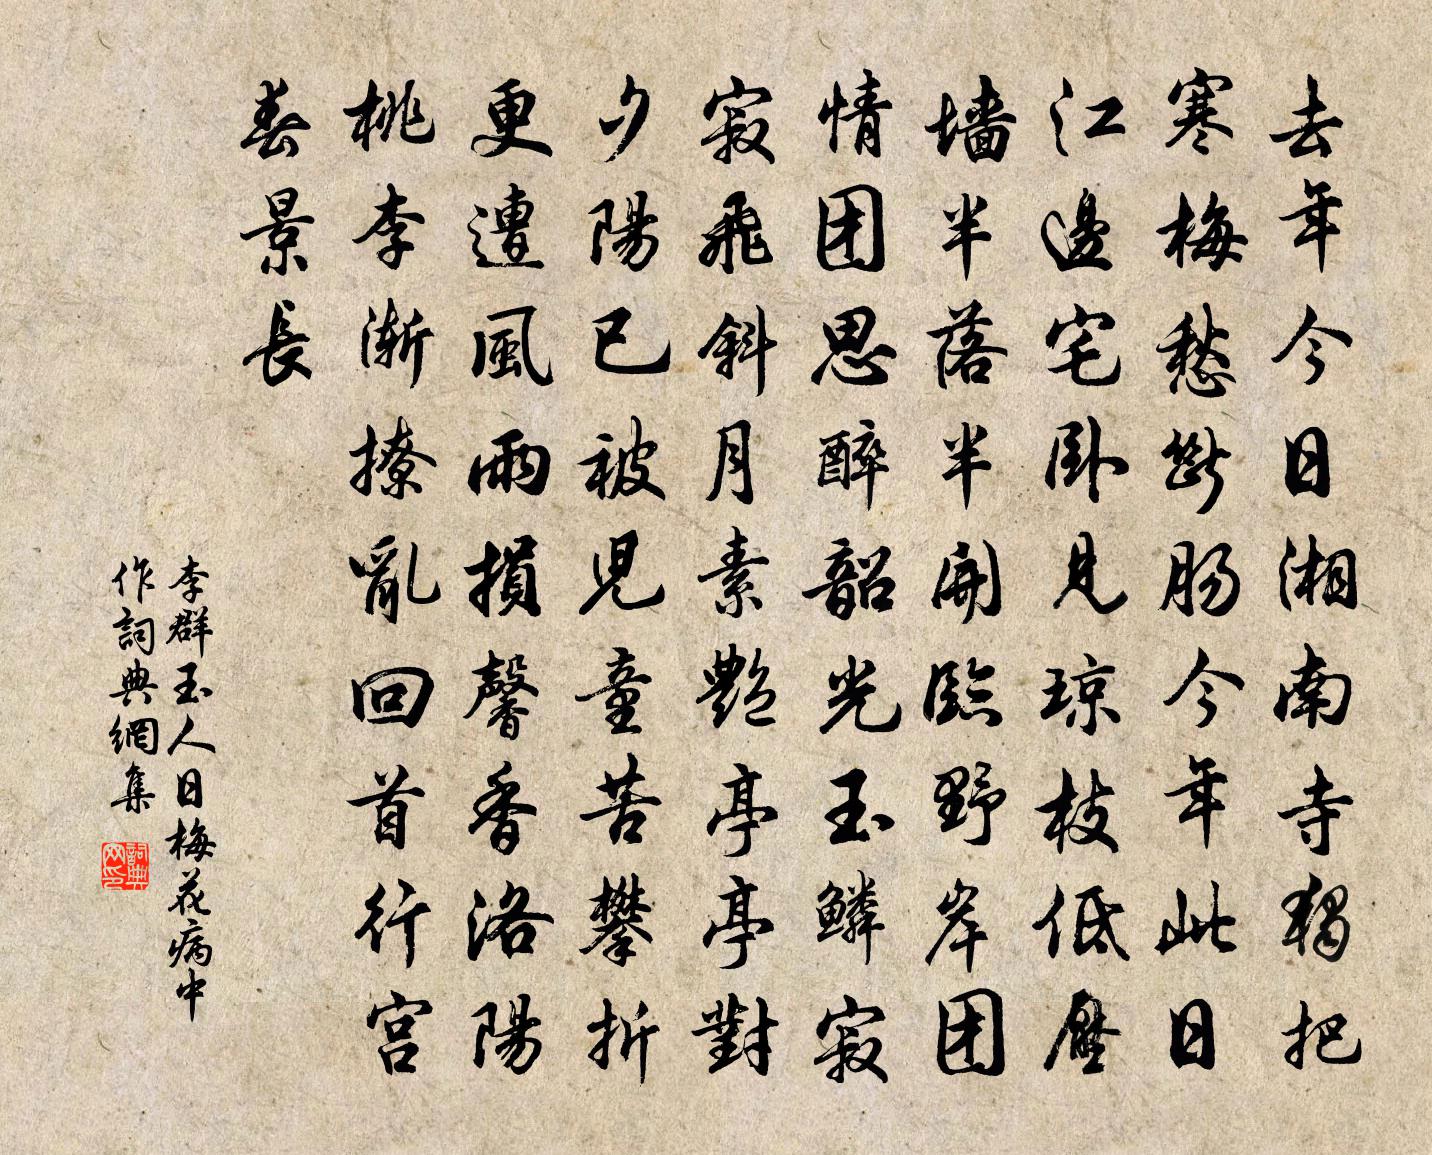 去年今日湘南寺獨把
寒梅愁斷腸今年此日
江邊宅臥見瓊枝低壓
墻半落半開臨野岸团
情团思醉韶光玉鱗寂
寂飛斜月素艷亭亭對
夕陽已被兒童苦攀折
更遭風雨損馨香洛陽
桃李漸撩亂回首行宫
春景長
李群玉人日梅花病中
作詞典網集
詞典网印